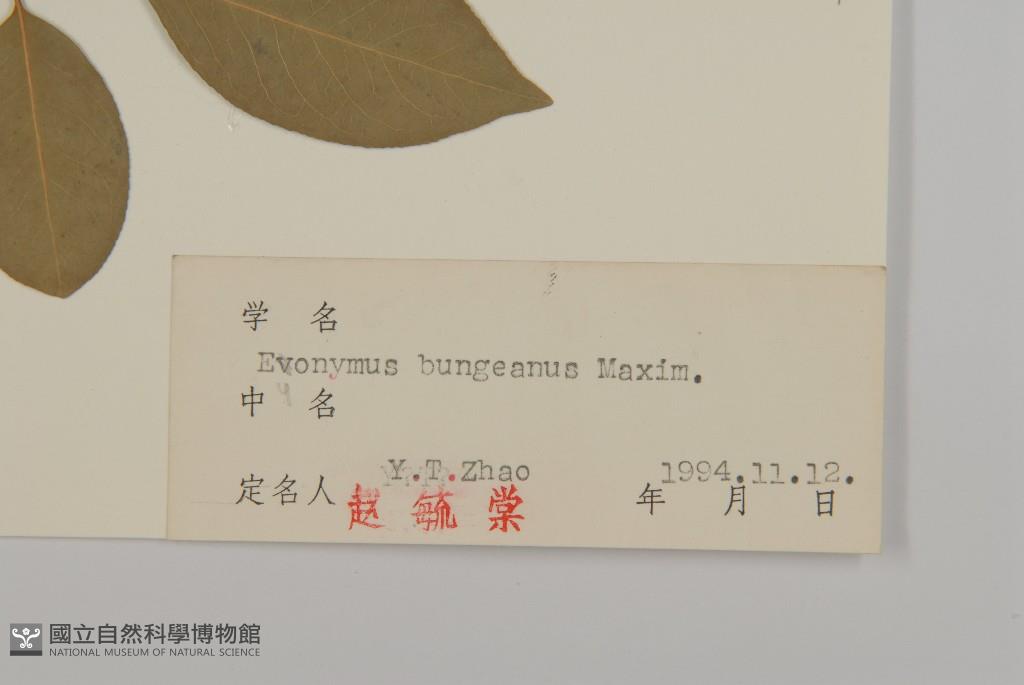 学 名
Evonymus bungeanus Maxim.
中 名
Y.T.Zhao 1994.11.12.
定名人 赵毓棠 年 月 日
國立自然科學博物館
NATIONAL MUSEUM OF NATURAL SCIENCE